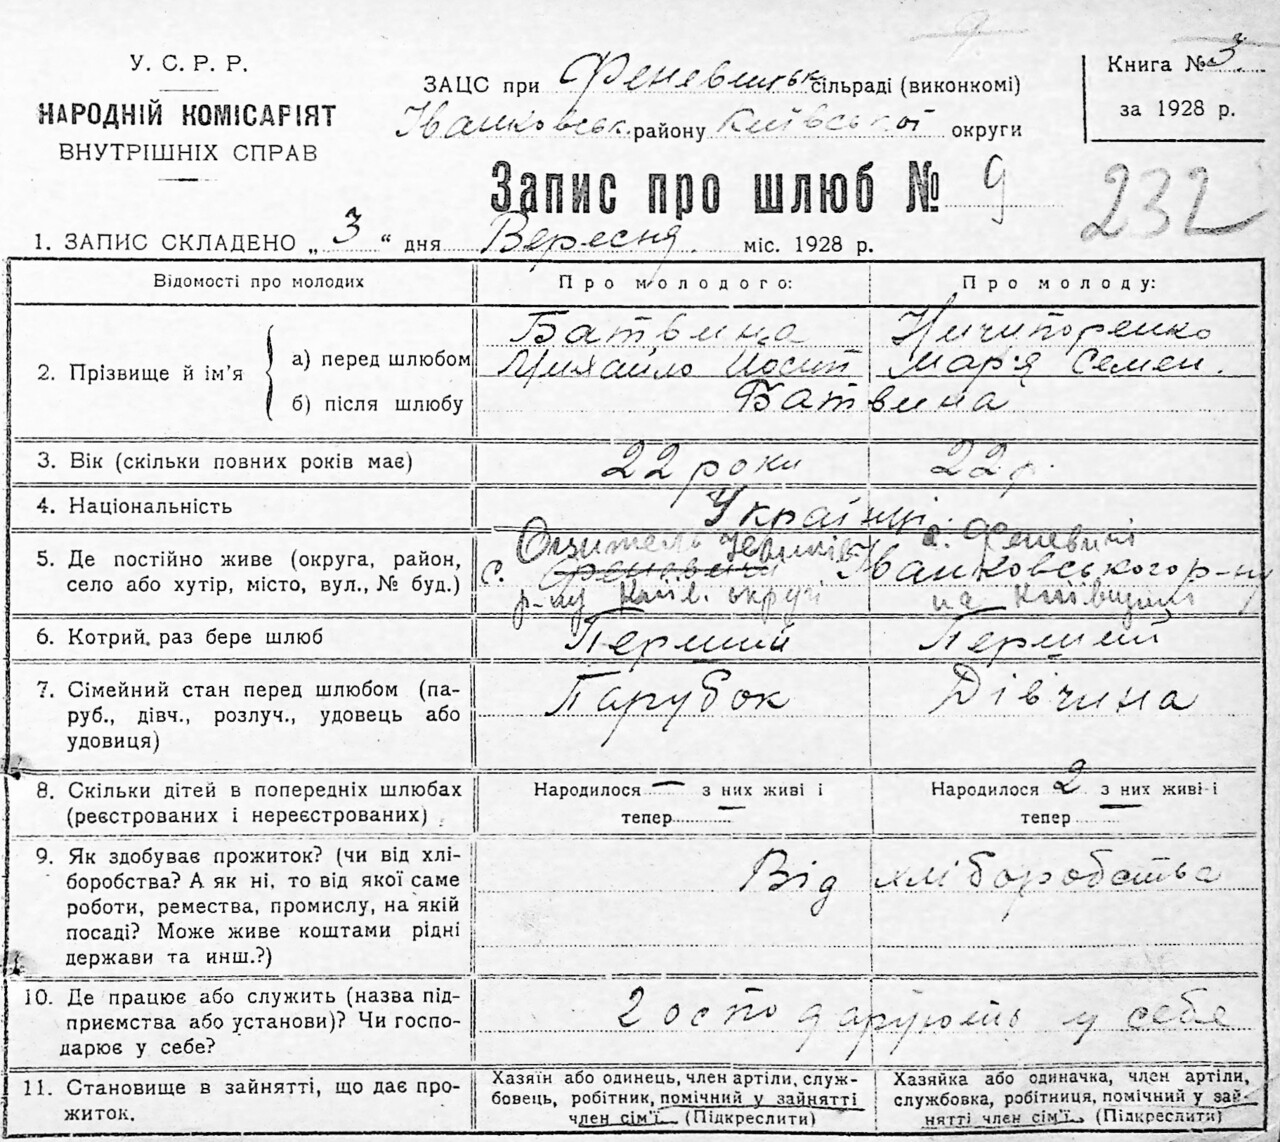 У. С. Р. Р.
НАРОДНІЙ КОМІСАРІЯТ
ВНУТРІШНІХ СПРАВ
ЗАЦС при Феневицьк сільраді (виконкомі)
Іванковськ. району Київської округи
Книга № 3
за 1928 р.
Запис про шлюб № 9
232
1. ЗАПИС СКЛАДЕНО „ 3 “ дня Вересня міс. 1928 р.
Відомості про молодих
Про молодого:
Про молоду:
2. Прізвище й ім’я
а) перед шлюбом
б) після шлюбу
Батвина
Михайло Йосип
Ничупоренко
Мар’я Семен.
Батвина
3. Вік (скільки повних років має)
22 роки
22 р.
4. Національність
Українці
5. Де постійно живе (округа, район,
село або хутір, місто, вул., № буд.)
с. Феневичі
р-ну Київ. округи
с. Феневичі
Іванковського р-ну
на Київщині
6. Котрий раз бере шлюб
Перший
Перший
7. Сімейний стан перед шлюбом (па-
руб., дівч., розлуч., удовець або
удовиця)
Парубок
Дівчина
8. Скільки дітей в попередніх шлюбах
(реєстрованих і нереєстрованих)
Народилося — з них живі і
тепер —
Народилося 2 з них живі і
тепер —
9. Як здобуває прожиток? (чи від хлі-
боробства? А як ні, то від якої саме
роботи, ремества, промислу, на якій
посаді? Може живе коштами рідні
держави та инш.?)
Від хліборобства
10. Де працює або служить (назва під-
приємства або установи)? Чи госпо-
дарює у себе?
Господарують у себе
11. Становище в зайнятті, що дає про-
житок.
Хазяїн або одинець, член артіли, служ-
бовець, робітник, помічний у зайнятті
член сім’ї. (Підкреслити)
Хазяйка або одиначка, член артіли,
службовка, робітниця, помічний у зай-
нятті член сім’ї. (Підкреслити)